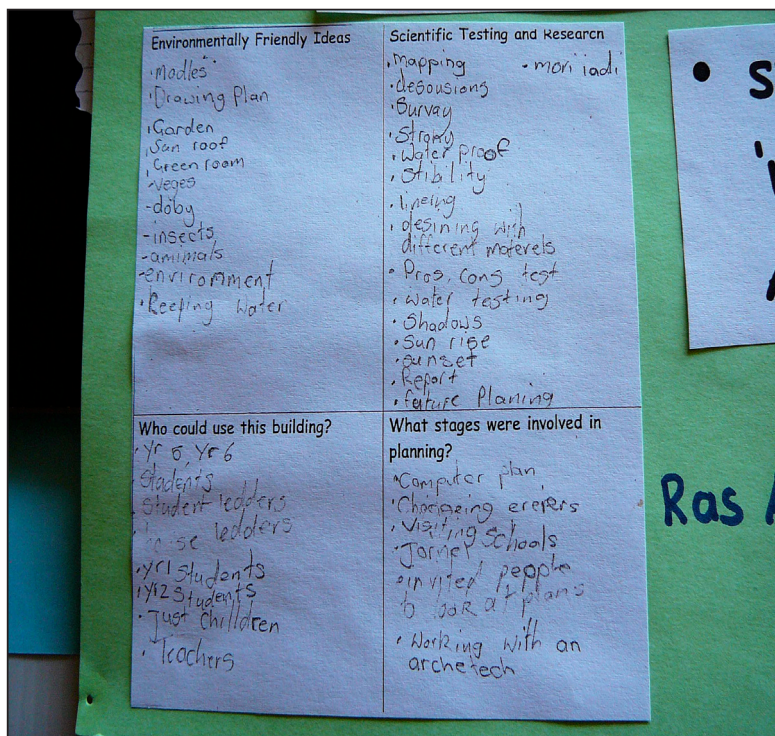 Environmentally Friendly Ideas
• Modles
• Drawing Plan
• Garden
• Sun roof
• Green room
- veges
- doby
- insects
- amimals
- enviromment
• Keeping Water
Scientific Testing and Research
• Mapping
• desousions
• Survay
• Strong
• Water proof
• Stibility
• lineing
• desining with
different moterels
• Pros, cons test
• water testing
• Shadows
• Sun rise
• sunset
• Report
• future Planing
Who could use this building?
• Yr 5, Yr 6
• Students
• Student ledders
• house ledders
• Yr1 Students
• Yr2 Students
• Just chilldren
• Teachers
What stages were involved in
planning?
• Computer plan
• Visiting schools
• invited people
to look at plans
• Working with an
archetech
Ras